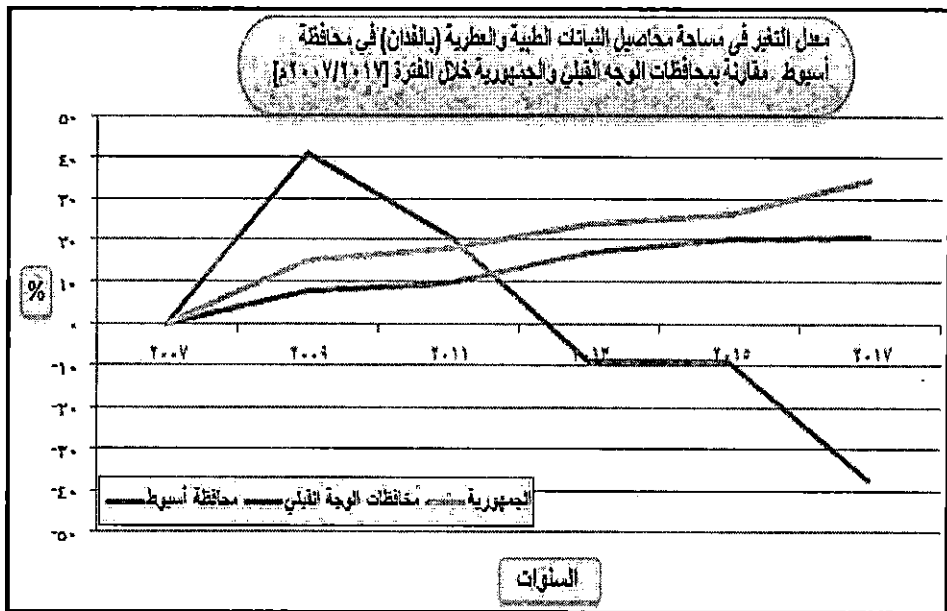 معدل التغير في مساحة محاصيل النباتات الطبية والعطرية (بالفدان) في محافظة
أسيوط مقارنة بمحافظات الوجه القبلي والجمهورية خلال الفترة [٢٠٠٧/٢٠١٧م]
٥٠
٤٠
٣٠
٢٠
١٠
٠
-١٠
-٢٠
-٣٠
-٤٠
-٥٠
%
٢٠٠٧ ٢٠٠٩ ٢٠١١ ٢٠١٣ ٢٠١٥ ٢٠١٧
محافظة أسيوط محافظات الوجة القبلي الجمهورية
السنوات